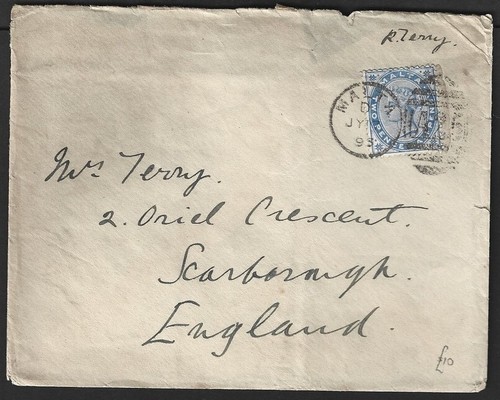 R. Terry.
MALTA
MALTA
D
JY
95
TWO PENCE
Mrs Terry.
2. Oriel Crescent.
Scarborough.
England.
£10